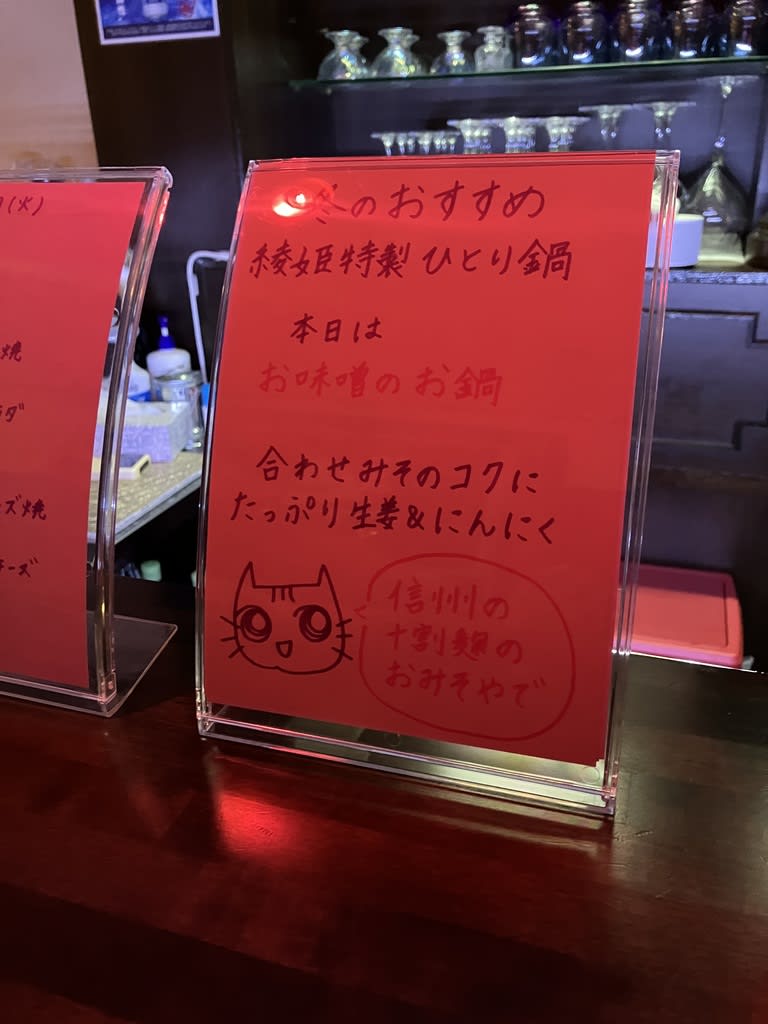 (火)
焼
ダ
ズ焼
ーズ
冬のおすすめ
綾姫特製 ひとり鍋
本日は
お味噌のお鍋
合わせみそのコクに
たっぷり生姜&にんにく
信州の
十割麹の
おみそやで